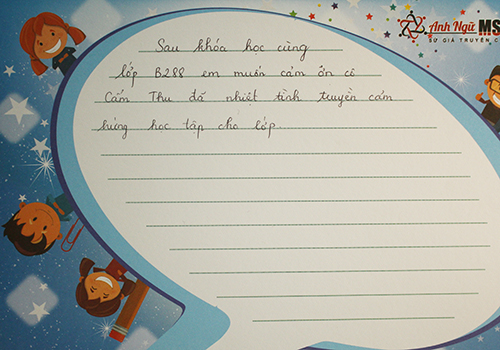 Anh Ngữ MS
SỨ GIẢ TRUYỀN C
Sau khóa học cùng
lớp B288 em muốn cảm ơn cô
Cẩm Thu đã nhiệt tình truyền cảm
hứng học tập cho lớp.